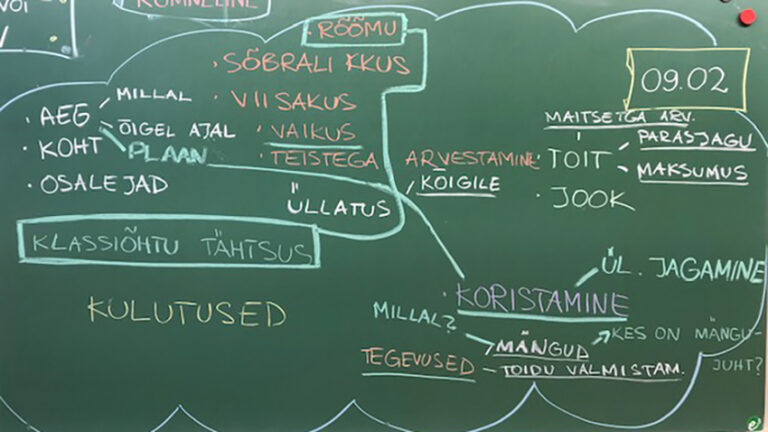 KOMNELINE
RÕÕMU
• SÕBRALIKKUS
• VIISAKUS
• VAIKUS
• TEISTEGA ARVESTAMINE
09.02
• AEG
MILLAL
ÕIGEL AJAL
PLAAN
• KOHT
• OSALEJAD
ÜLLATUS
KÕIGILE
MAITSETGA ARV.
• TOIT
PARASJAGU
MAKSUMUS
• JOOK
KLASSIÕHTU TÄHTSUS
KULUTUSED
• KORISTAMINE
ÜL. JAGAMINE
MILLAL?
TEGEVUSED
MÄNGUD
KES ON MÄNGU-
JUHT?
– TOIDU VALMISTAM.